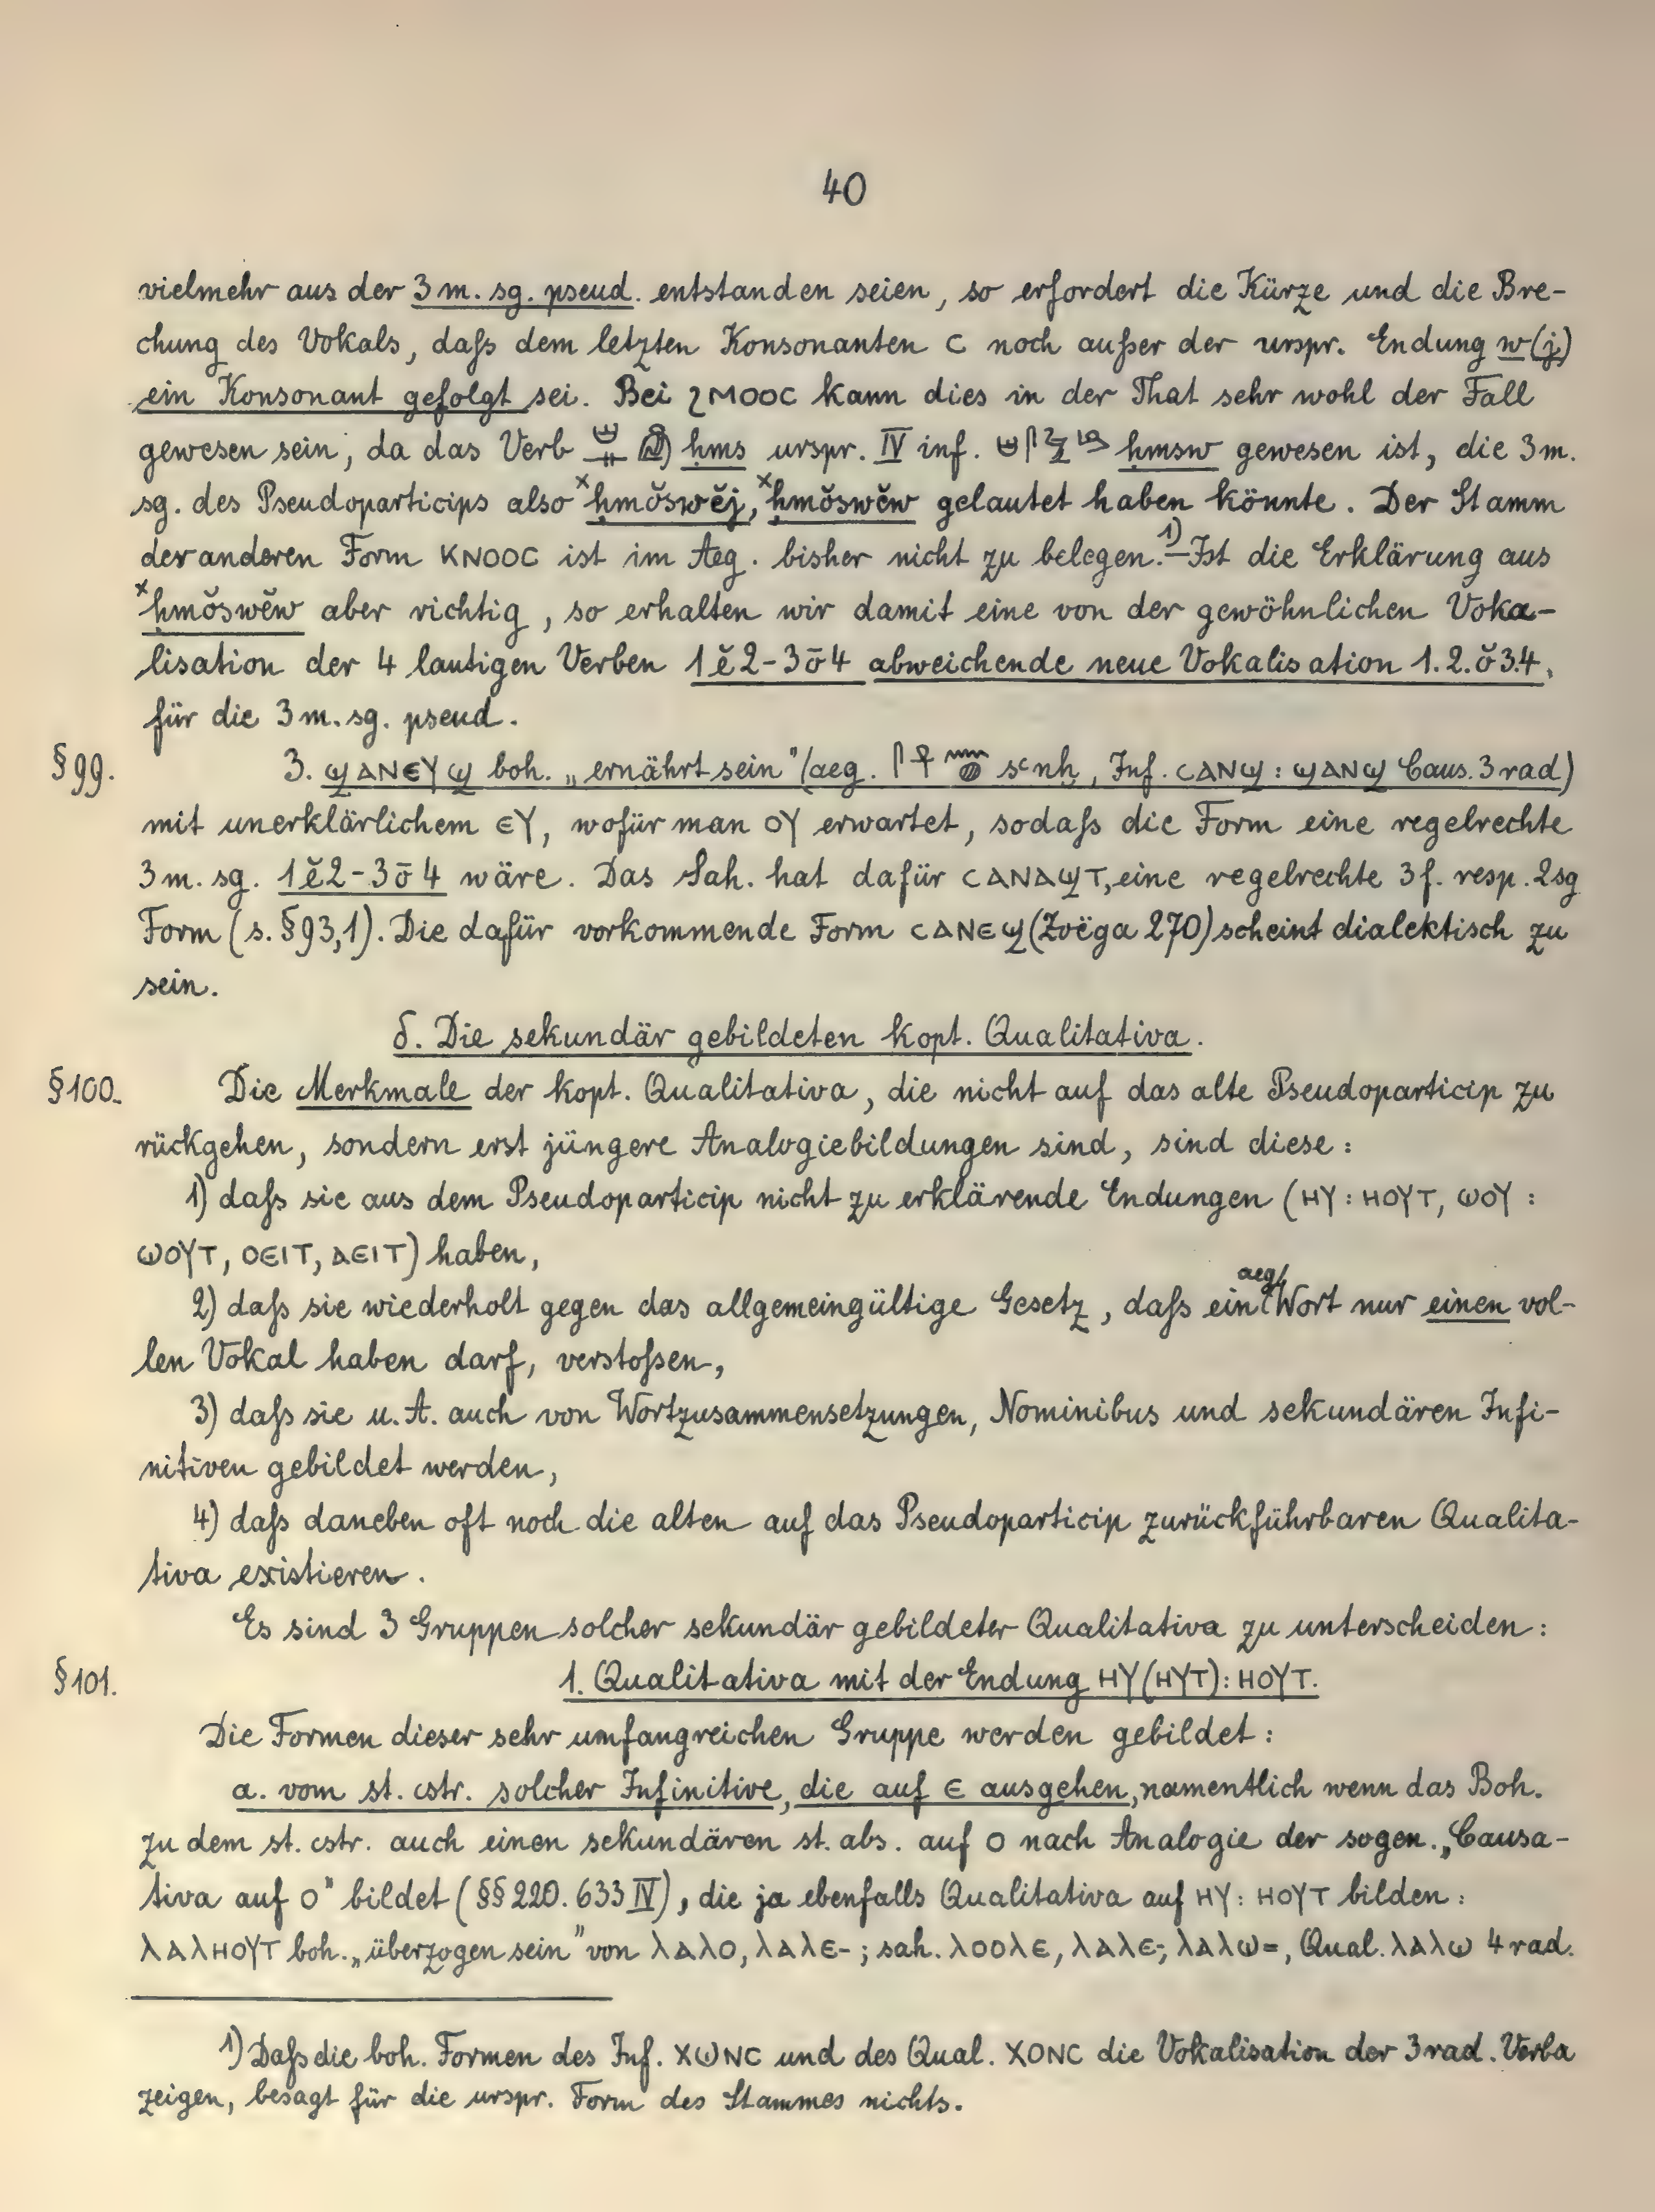 40
vielmehr aus der 3 m. sg. pseud. entstanden seien, so erfordert die Kürze und die Bre-
chung des Vokals, daſs dem letzten Konsonanten ⲥ noch auſser der urspr. Endung w(j)
ein Konsonant gefolgt sei. Bei ϩⲙⲟⲟⲥ kann dies in der That sehr wohl der Fall
gewesen sein, da das Verb ḥms urspr. IV inf. ḥmsw gewesen ist, die 3 m.
sg. des Pseudoparticips also ˣḥmŏswĕj, ˣḥmŏswĕw gelautet haben könnte. Der Stamm
der anderen Form ⲕⲛⲟⲟⲥ ist im Aeg. bisher nicht zu belegen.¹⁾ – Ist die Erklärung aus
ˣḥmŏswĕw aber richtig, so erhalten wir damit eine von der gewöhnlichen Voka-
lisation der 4 lautigen Verben 1ĕ2-3ō4 abweichende neue Vokalisation 1.2.ŏ3.4.
für die 3 m. sg. pseud.
§ 99. 3. ϣⲁⲛⲉⲩϣ boh. „ernährt sein" (aeg. sꜥnḫ, Inf. ⲥⲁⲛϣ : ϣⲁⲛϣ Caus. 3 rad)
mit unerklärlichem ⲉⲩ, wofür man ⲟⲩ erwartet, sodaſs die Form eine regelrechte
3 m. sg. 1ĕ2-3ō4 wäre. Das Sah. hat dafür ⲥⲁⲛⲁϣⲧ, eine regelrechte 3 f. resp. 2 sg
Form (s. § 93,1). Die dafür vorkommende Form ⲥⲁⲛⲉϣ (Zoëga 270) scheint dialektisch zu
sein.
δ. Die sekundär gebildeten kopt. Qualitativa.
§ 100. Die Merkmale der kopt. Qualitativa, die nicht auf das alte Pseudoparticip zu
rückgehen, sondern erst jüngere Analogiebildungen sind, sind diese:
1) daſs sie aus dem Pseudoparticip nicht zu erklärende Endungen (ⲏⲩ : ⲏⲟⲩⲧ, ⲱⲟⲩ :
ⲱⲟⲩⲧ, ⲟⲉⲓⲧ, ⲁⲉⲓⲧ) haben,
2) daſs sie wiederholt gegen das allgemeingültige Gesetz, daſs ein aeg. Wort nur einen vol-
len Vokal haben darf, verstoſsen,
3) daſs sie u. A. auch von Wortzusammensetzungen, Nominibus und sekundären Infi-
nitiven gebildet werden,
4) daſs daneben oft noch die alten auf das Pseudoparticip zurückführbaren Qualita-
tiva existieren.
Es sind 3 Gruppen solcher sekundär gebildeter Qualitativa zu unterscheiden:
§ 101. 1. Qualitativa mit der Endung ⲏⲩ (ⲏⲩⲧ) : ⲏⲟⲩⲧ.
Die Formen dieser sehr umfangreichen Gruppe werden gebildet:
a. vom st. cstr. solcher Infinitive, die auf ⲉ ausgehen, namentlich wenn das Boh.
zu dem st. cstr. auch einen sekundären st. abs. auf ⲟ nach Analogie der sogen. „Causa-
tiva auf ⲟ" bildet (§§ 220. 633 IV), die ja ebenfalls Qualitativa auf ⲏⲩ : ⲏⲟⲩⲧ bilden:
ⲗⲁⲗⲏⲟⲩⲧ boh. „überzogen sein" von ⲗⲁⲗⲟ, ⲗⲁⲗⲉ- ; sah. ⲗⲟⲟⲗⲉ, ⲗⲁⲗⲉ-, ⲗⲁⲗⲱ=, Qual. ⲗⲁⲗⲱ 4 rad.
1) Daſs die boh. Formen des Inf. ⲭⲱⲛⲥ und des Qual. ⲭⲟⲛⲥ die Vokalisation der 3 rad. Verba
zeigen, besagt für die urspr. Form des Stammes nichts.